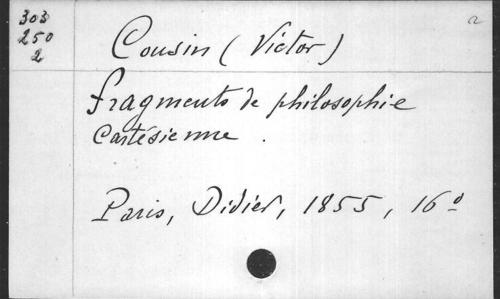 303
250
2
2
Cousin (Victor)
fragments de philosophie
Cartésienne.
Paris, Didier, 1855, 16º